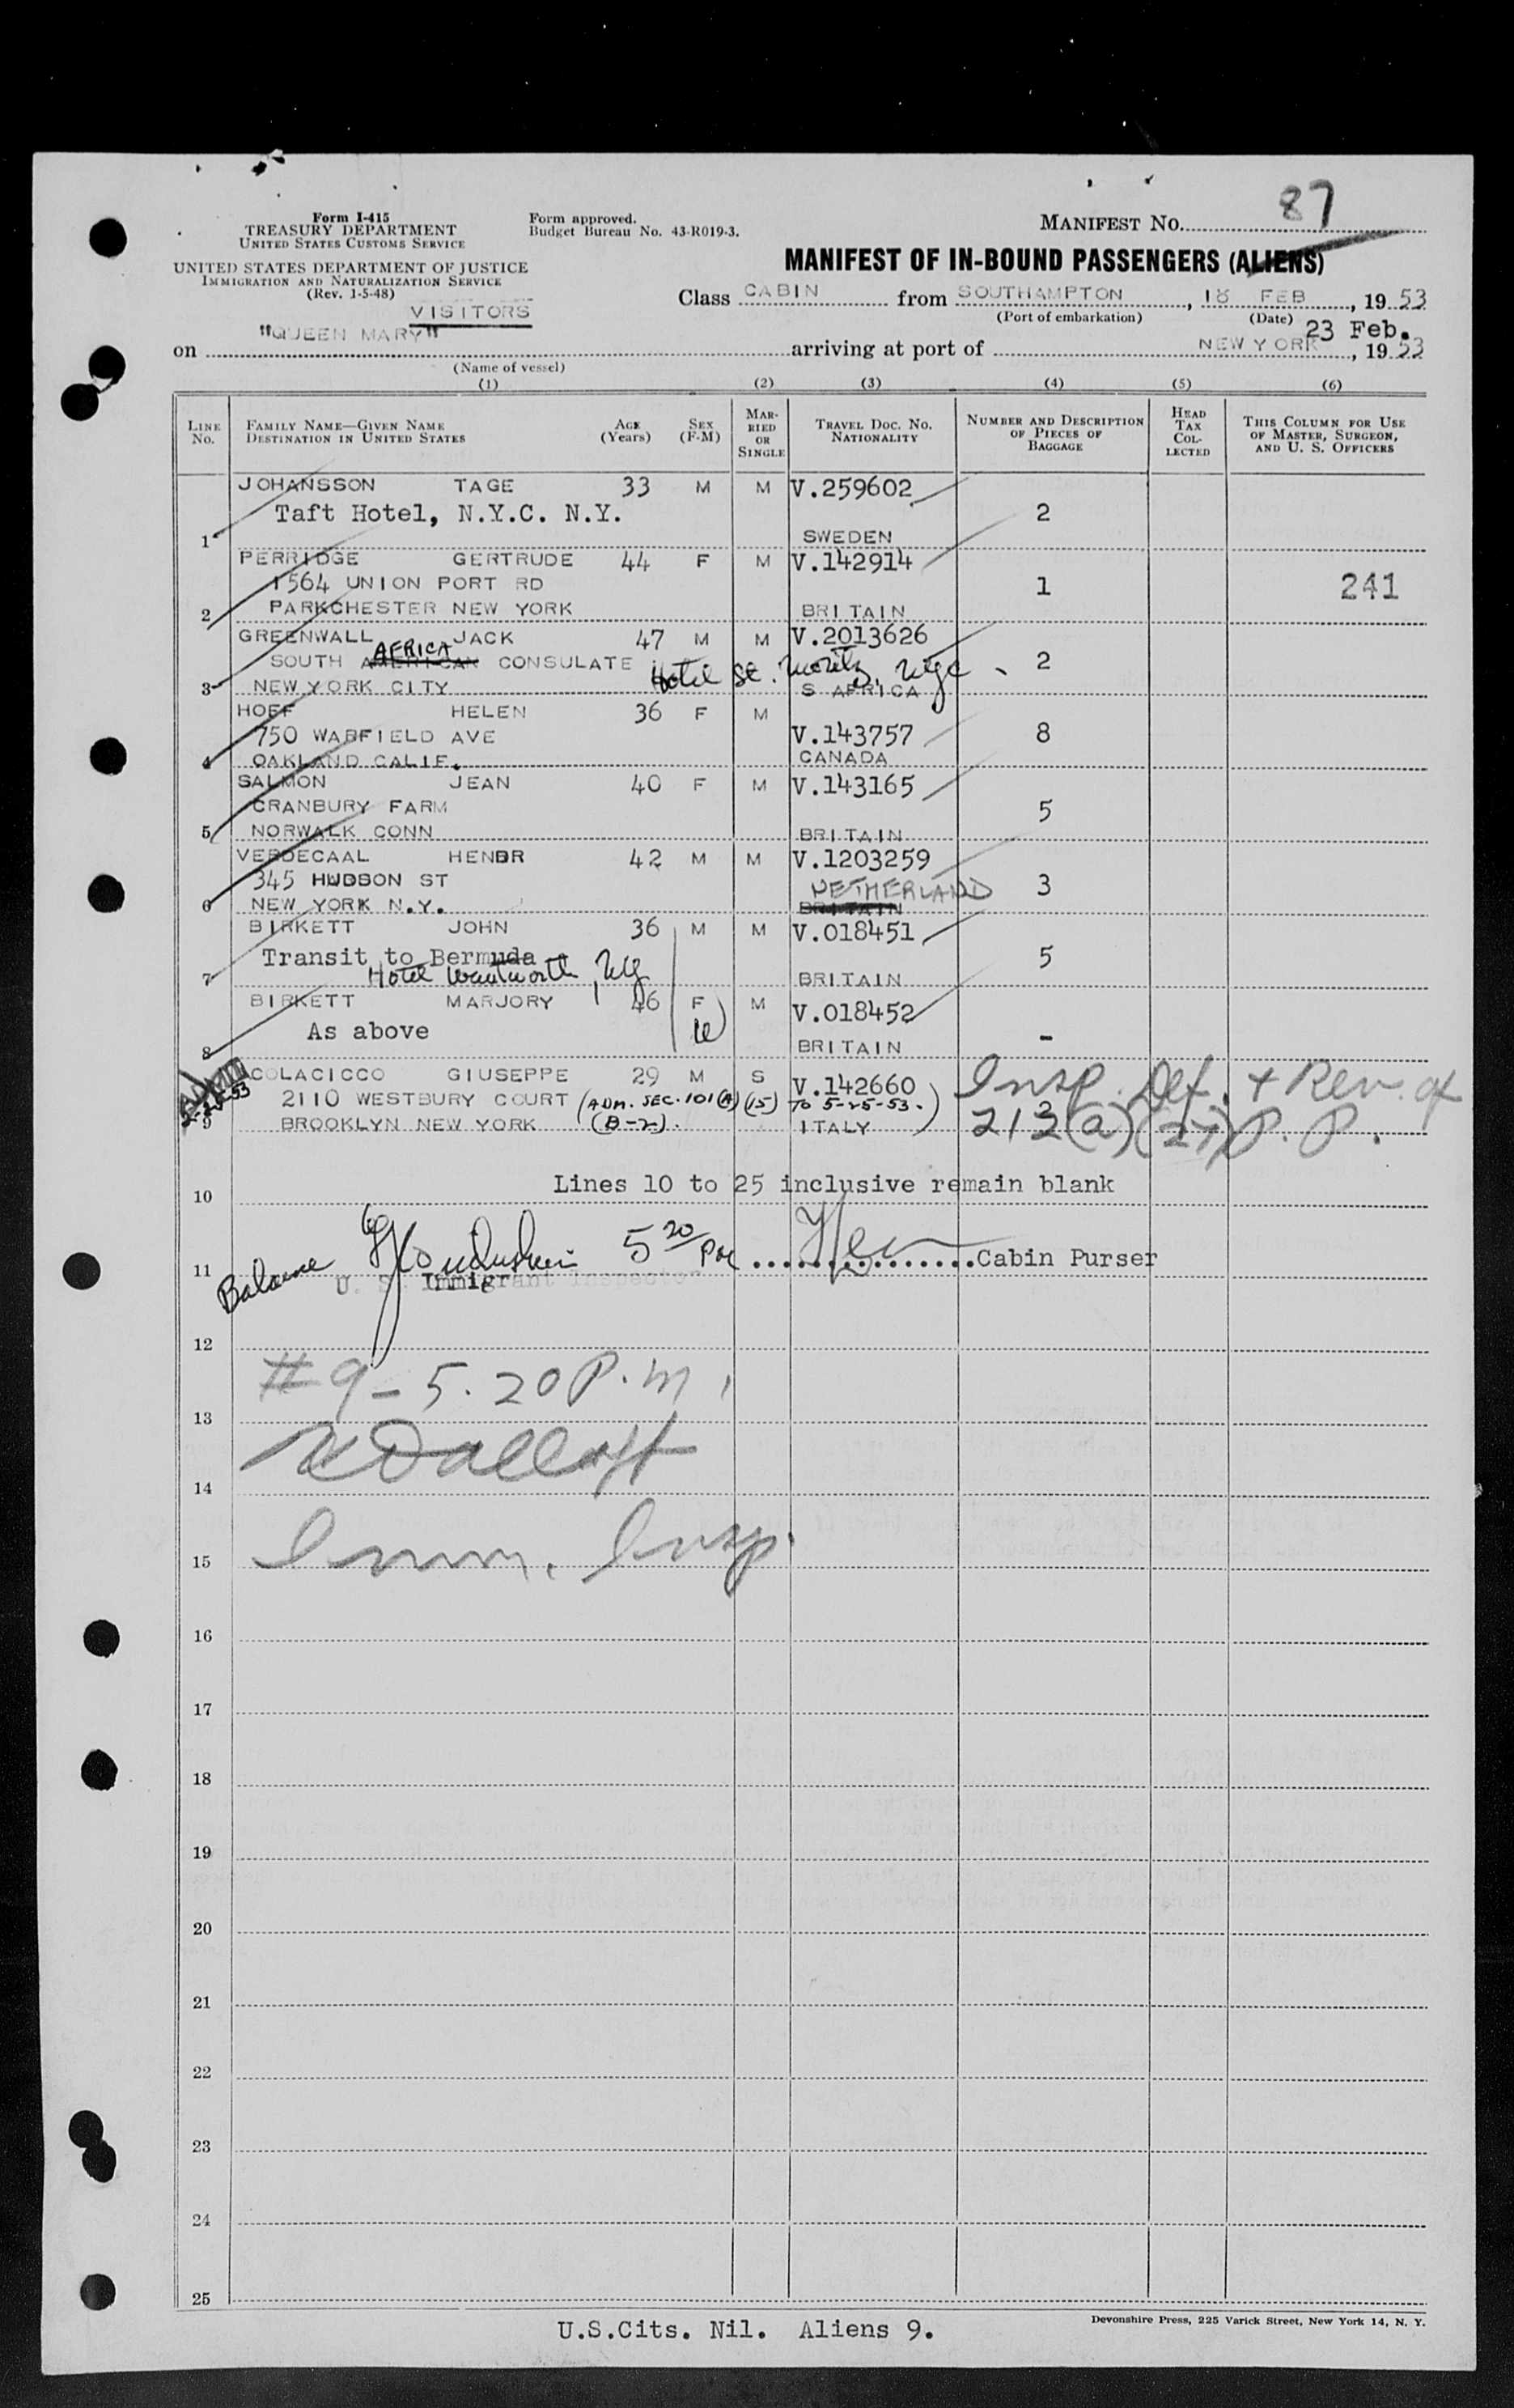 87
Form I-415
TREASURY DEPARTMENT
UNITED STATES CUSTOMS SERVICE
Form approved.
Budget Bureau No. 43-R019-3.
MANIFEST NO.
UNITED STATES DEPARTMENT OF JUSTICE
IMMIGRATION AND NATURALIZATION SERVICE
(Rev. 1-5-48)
MANIFEST OF IN-BOUND PASSENGERS (ALIENS)
VISITORS
Class CABIN from SOUTHAMPTON, 18 FEB, 1953
(Port of embarkation) (Date)
23 Feb.
on "QUEEN MARY" arriving at port of NEW YORK, 1953
(Name of vessel)
(1) (2) (3) (4) (5) (6)
LINE NO.
FAMILY NAME—GIVEN NAME
DESTINATION IN UNITED STATES
AGE (Years)
SEX (F-M)
MARRIED OR SINGLE
TRAVEL DOC. NO.
NATIONALITY
NUMBER AND DESCRIPTION OF PIECES OF BAGGAGE
HEAD TAX COLLECTED
THIS COLUMN FOR USE OF MASTER, SURGEON, AND U. S. OFFICERS
JOHANSSON TAGE 33 M M V.259602
Taft Hotel, N.Y.C. N.Y. 2
1 SWEDEN
PERRIDGE GERTRUDE 44 F M V.142914
1564 UNION PORT RD 1 241
2 PARKCHESTER NEW YORK BRITAIN
GREENWALL JACK 47 M M V.2013626
SOUTH AMERICAN AFRICA CONSULATE Hotel St. Moritz, nyc 2
3 NEW YORK CITY S AFRICA
HOFF HELEN 36 F M
750 WARFIELD AVE V.143757 8
4 OAKLAND CALIF. CANADA
SALMON JEAN 40 F M V.143165
CRANBURY FARM 5
5 NORWALK CONN BRITAIN
VERDECAAL HENDR 42 M M V.1203259
345 HUDSON ST NETHERLAND 3
6 NEW YORK N.Y. BRITAIN
BIRKETT JOHN 36 M M V.018451
Transit to Bermuda 5
7 Hotel Wentworth, BRITAIN
BIRKETT MARJORY 46 F M V.018452
As above -
8 BRITAIN
COLACICCO GIUSEPPE 29 M S V.142660 Insp. Def. + Rev. of
Adm 5-25-53
2110 WESTBURY COURT (ADM. SEC. 101 (A) (15) TO 5-25-53.) 2
9 BROOKLYN NEW YORK (B-2). ITALY 212(a)(27) P.P.
Lines 10 to 25 inclusive remain blank
10
Balance 5 20 PM
11 U. S. Immigrant Inspector ...............Cabin Purser
12
#9 - 5.20 P.M.
13
14
Imm. Insp.
15
16
17
18
19
20
21
22
23
24
25
U.S.Cits. Nil. Aliens 9.
Devonshire Press, 225 Varick Street, New York 14, N. Y.